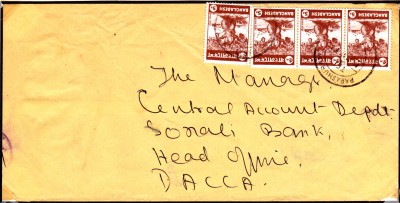 BANGLADESH
BANGLADESH
BANGLADESH
BANGLADESH
The Manager
Central Account Deptt.
Sonali Bank,
Head office.
DACCA.